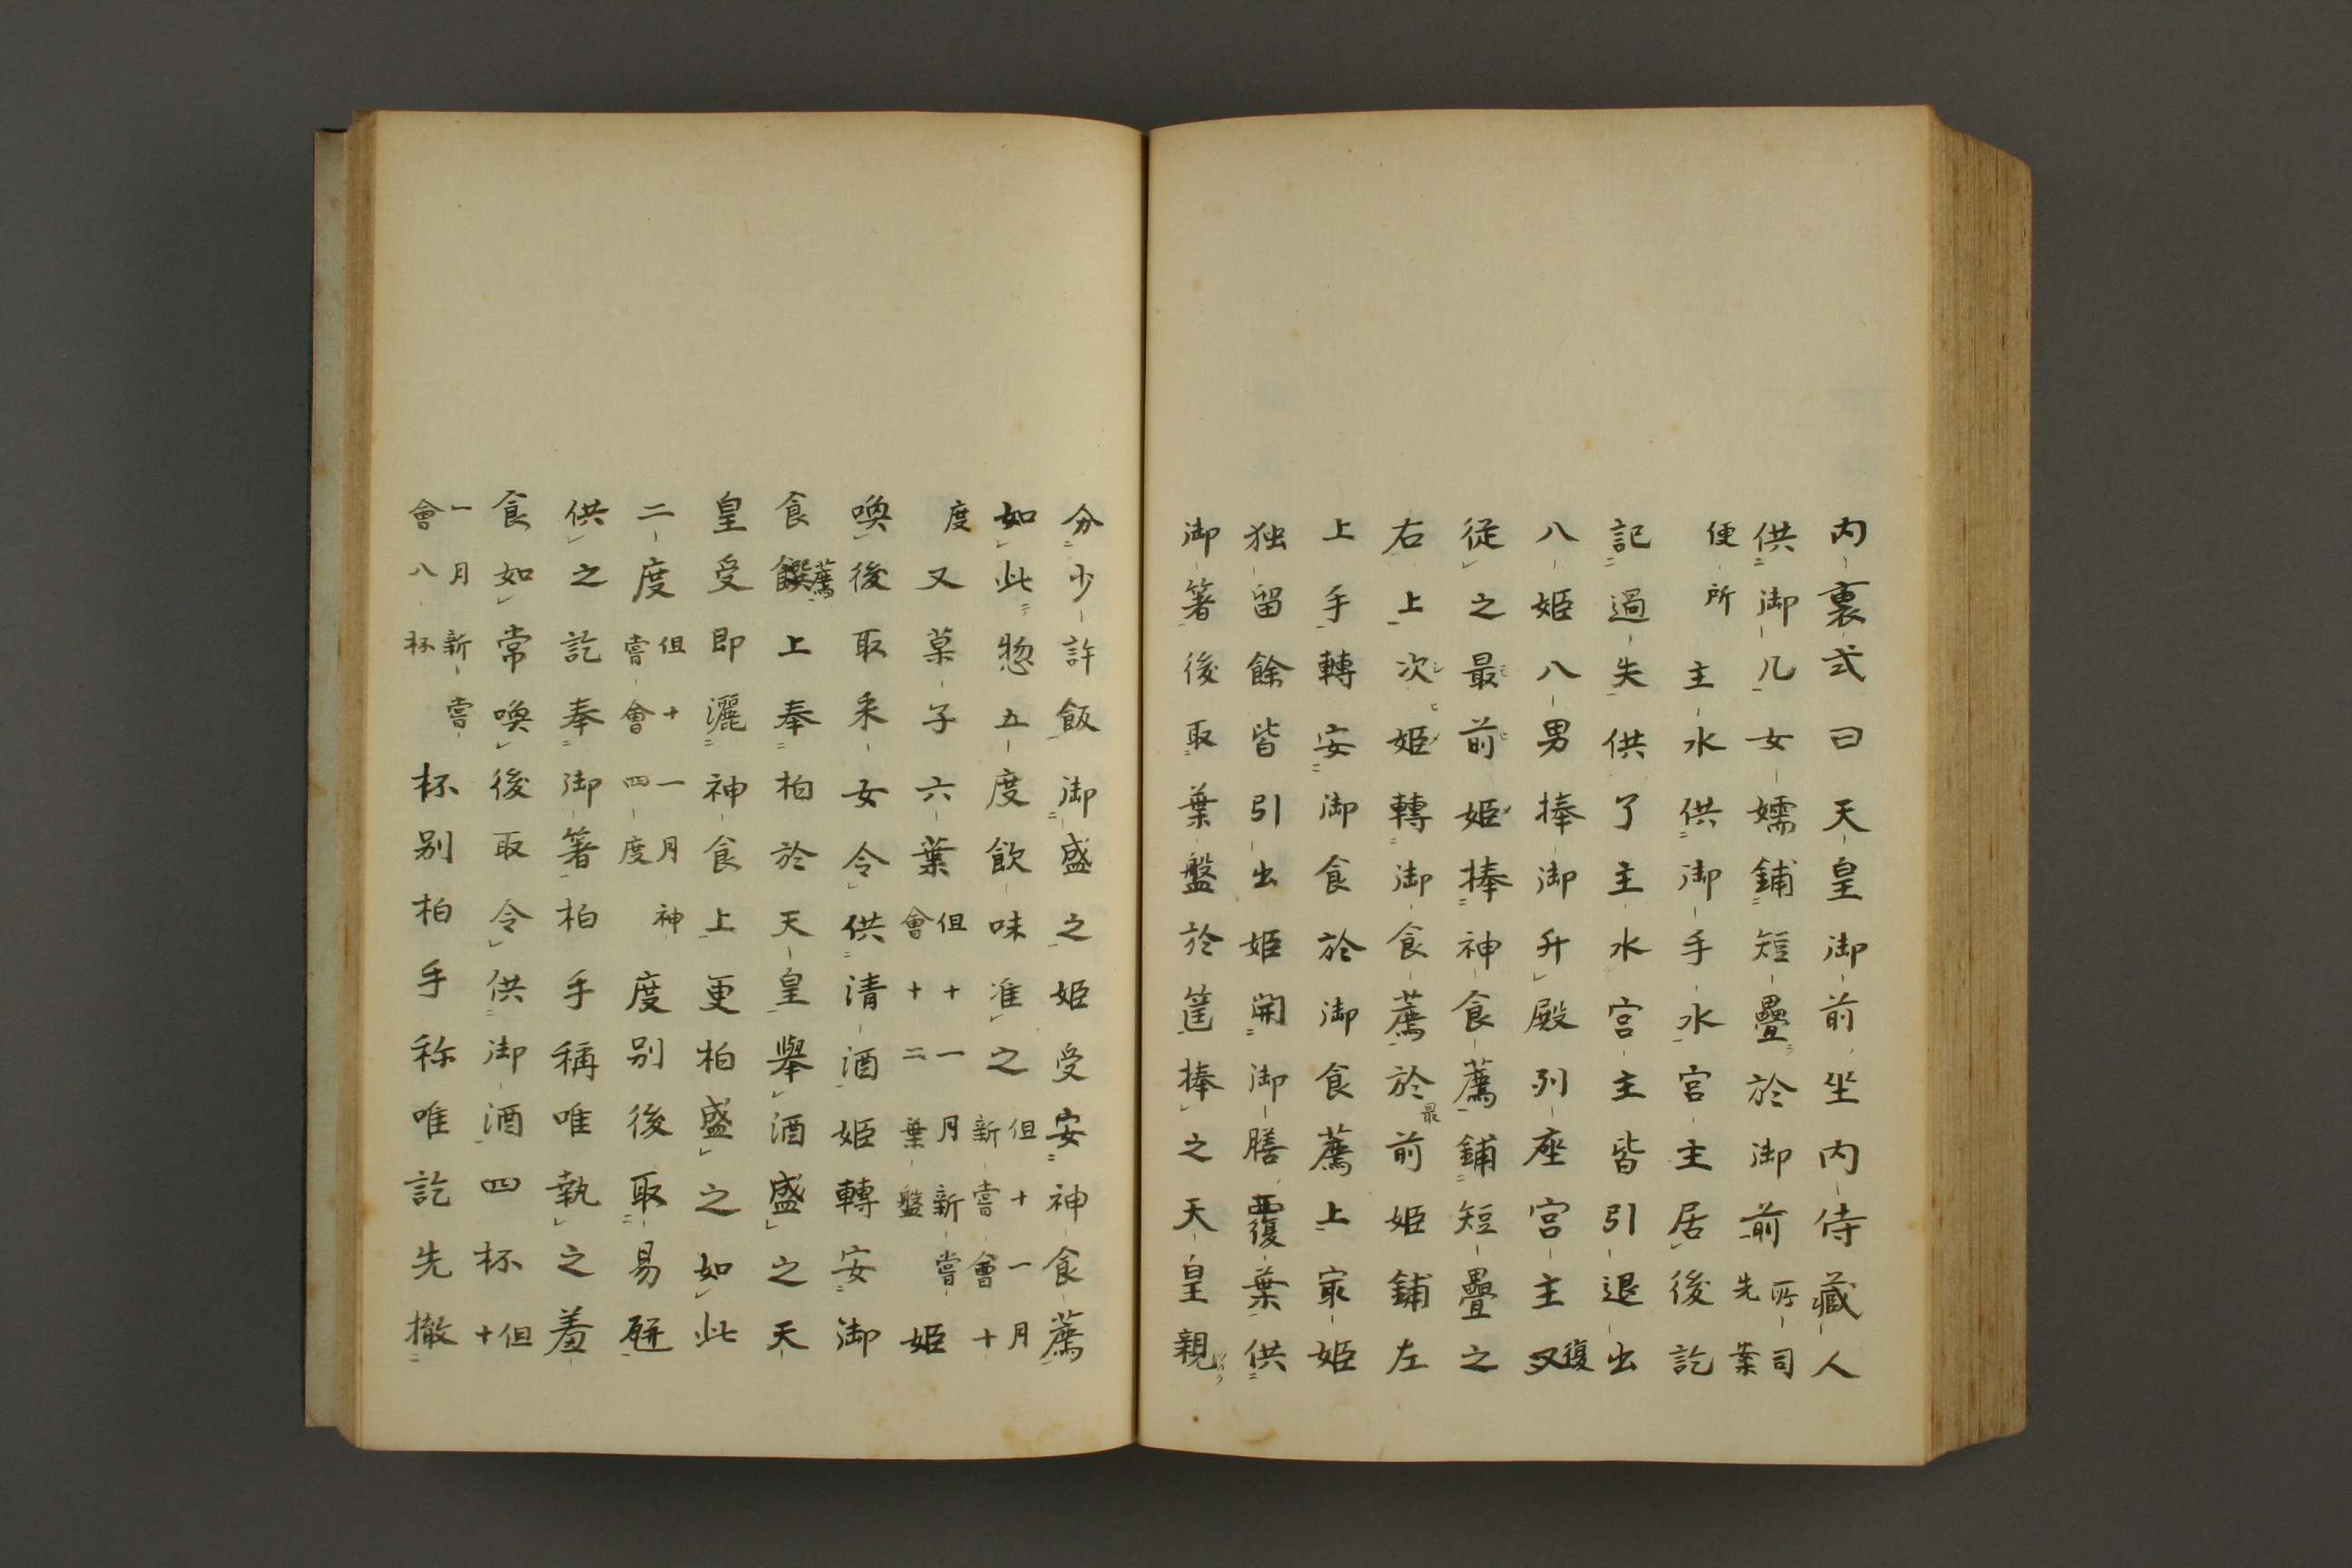 内裏式曰天皇御前坐内侍藏人
供御几女孺鋪短疊於御前所司先案
便所主水供御手水宮主居後訖
記過失供了主水宮主皆引退出
八姫八男捧御升殿列座宮主又復
従之最前姫捧神食薦鋪短疊之
右上次姫轉御食薦於最前姫鋪左
上手轉安御食於御食薦上㝡姫
独留餘皆引出姫開御膳覆葉供
御箸後取葉盤於筐捧之天皇親
分少許飯御盛之姫受安神食薦
如此惣五度飲味准之但十一月新嘗會十
度又菓子六葉但十一月新嘗會十二葉盤姫
喚後取采女令供清酒姫轉安御
食饌薦上奉柏於天皇舉酒盛之天
皇受即灑神食上更柏盛之如此
二度但十一月神嘗會四度度別後取易瓶
供之訖奉御箸柏手稱唯執之羞
食如常喚後取令供御酒四杯但十
一月新嘗會八杯杯別柏手称唯訖先撤